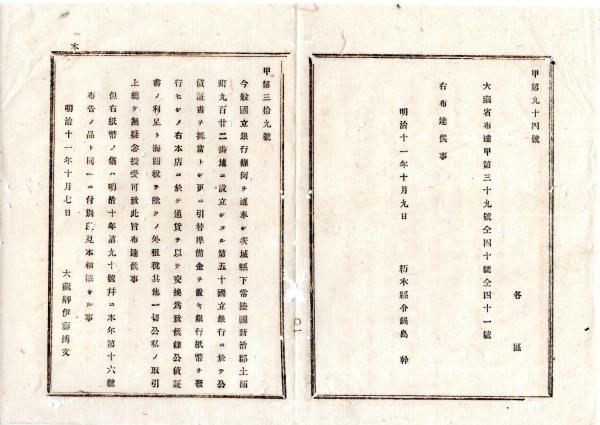 甲第九十四號
各區
大藏省布達甲第三十九號仝四十號仝四十一號
右布達候事
明治十一年十月九日
栃木縣令鍋島 幹
〇一
甲第三拾九號
今般國立銀行條例ヲ遵奉シ茨城縣下常陸國新治郡土浦
町九百廿二番地ニ設立シタル第五十國立銀行ニ於テ公
債証書ヲ抵當トシ更ニ引替準備金ヲ置キ銀行紙幣ヲ發
行セシメ右本店ニ於テ通貨ヲ以テ交換為致候條公債証
書ノ利足ト海關税ヲ除クノ外租税其他一切公私ノ取引
上總テ無疑念授受可致此旨布達候事
但右紙幣ノ儀ハ明治十年第九十號幷ニ本年第十六號
布告ノ品ト同一ニ付別段見本相添サル事
明治十一年十月七日
大藏卿伊藤博文
本